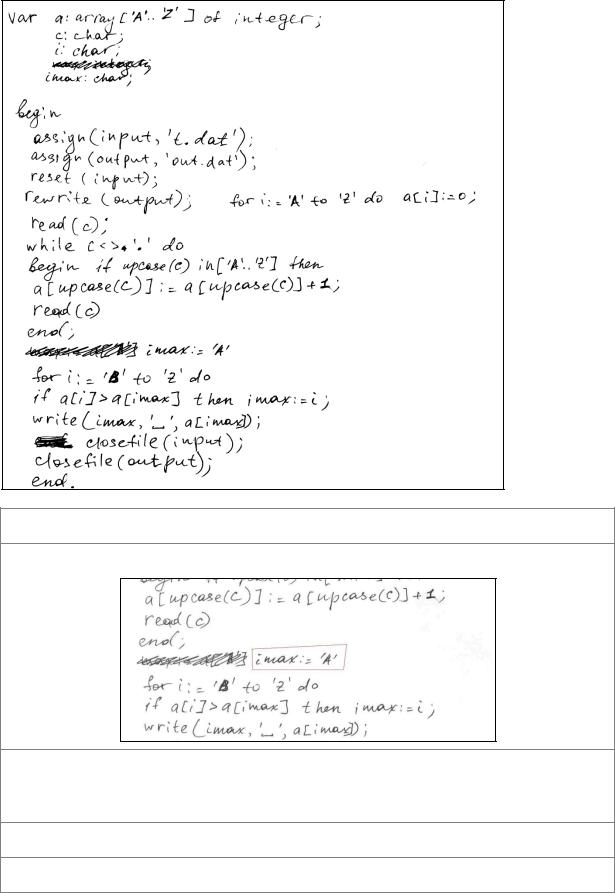 Var a: array ['A'..'Z'] of integer;
c: char;
i: char;
imax: char;
begin
assign(input, 't.dat');
assign(output, 'out.dat');
reset (input);
rewrite (output); for i:= 'A' to 'Z' do a[i]:=0;
read(c);
while c<>'.' do
begin if upcase(c) in['A'..'Z'] then
a[upcase(c)]:= a[upcase(c)]+1;
read(c)
end;
imax:= 'A'
for i:= 'B' to 'Z' do
if a[i]>a[imax] then imax:=i;
write(imax, '␣', a[imax]);
closefile(input);
closefile(output);
end.
a[upcase(c)]:= a[upcase(c)]+1;
read(c)
end;
imax:= 'A'
for i:= 'B' to 'Z' do
if a[i]>a[imax] then imax:=i;
write(imax, '␣', a[imax]);